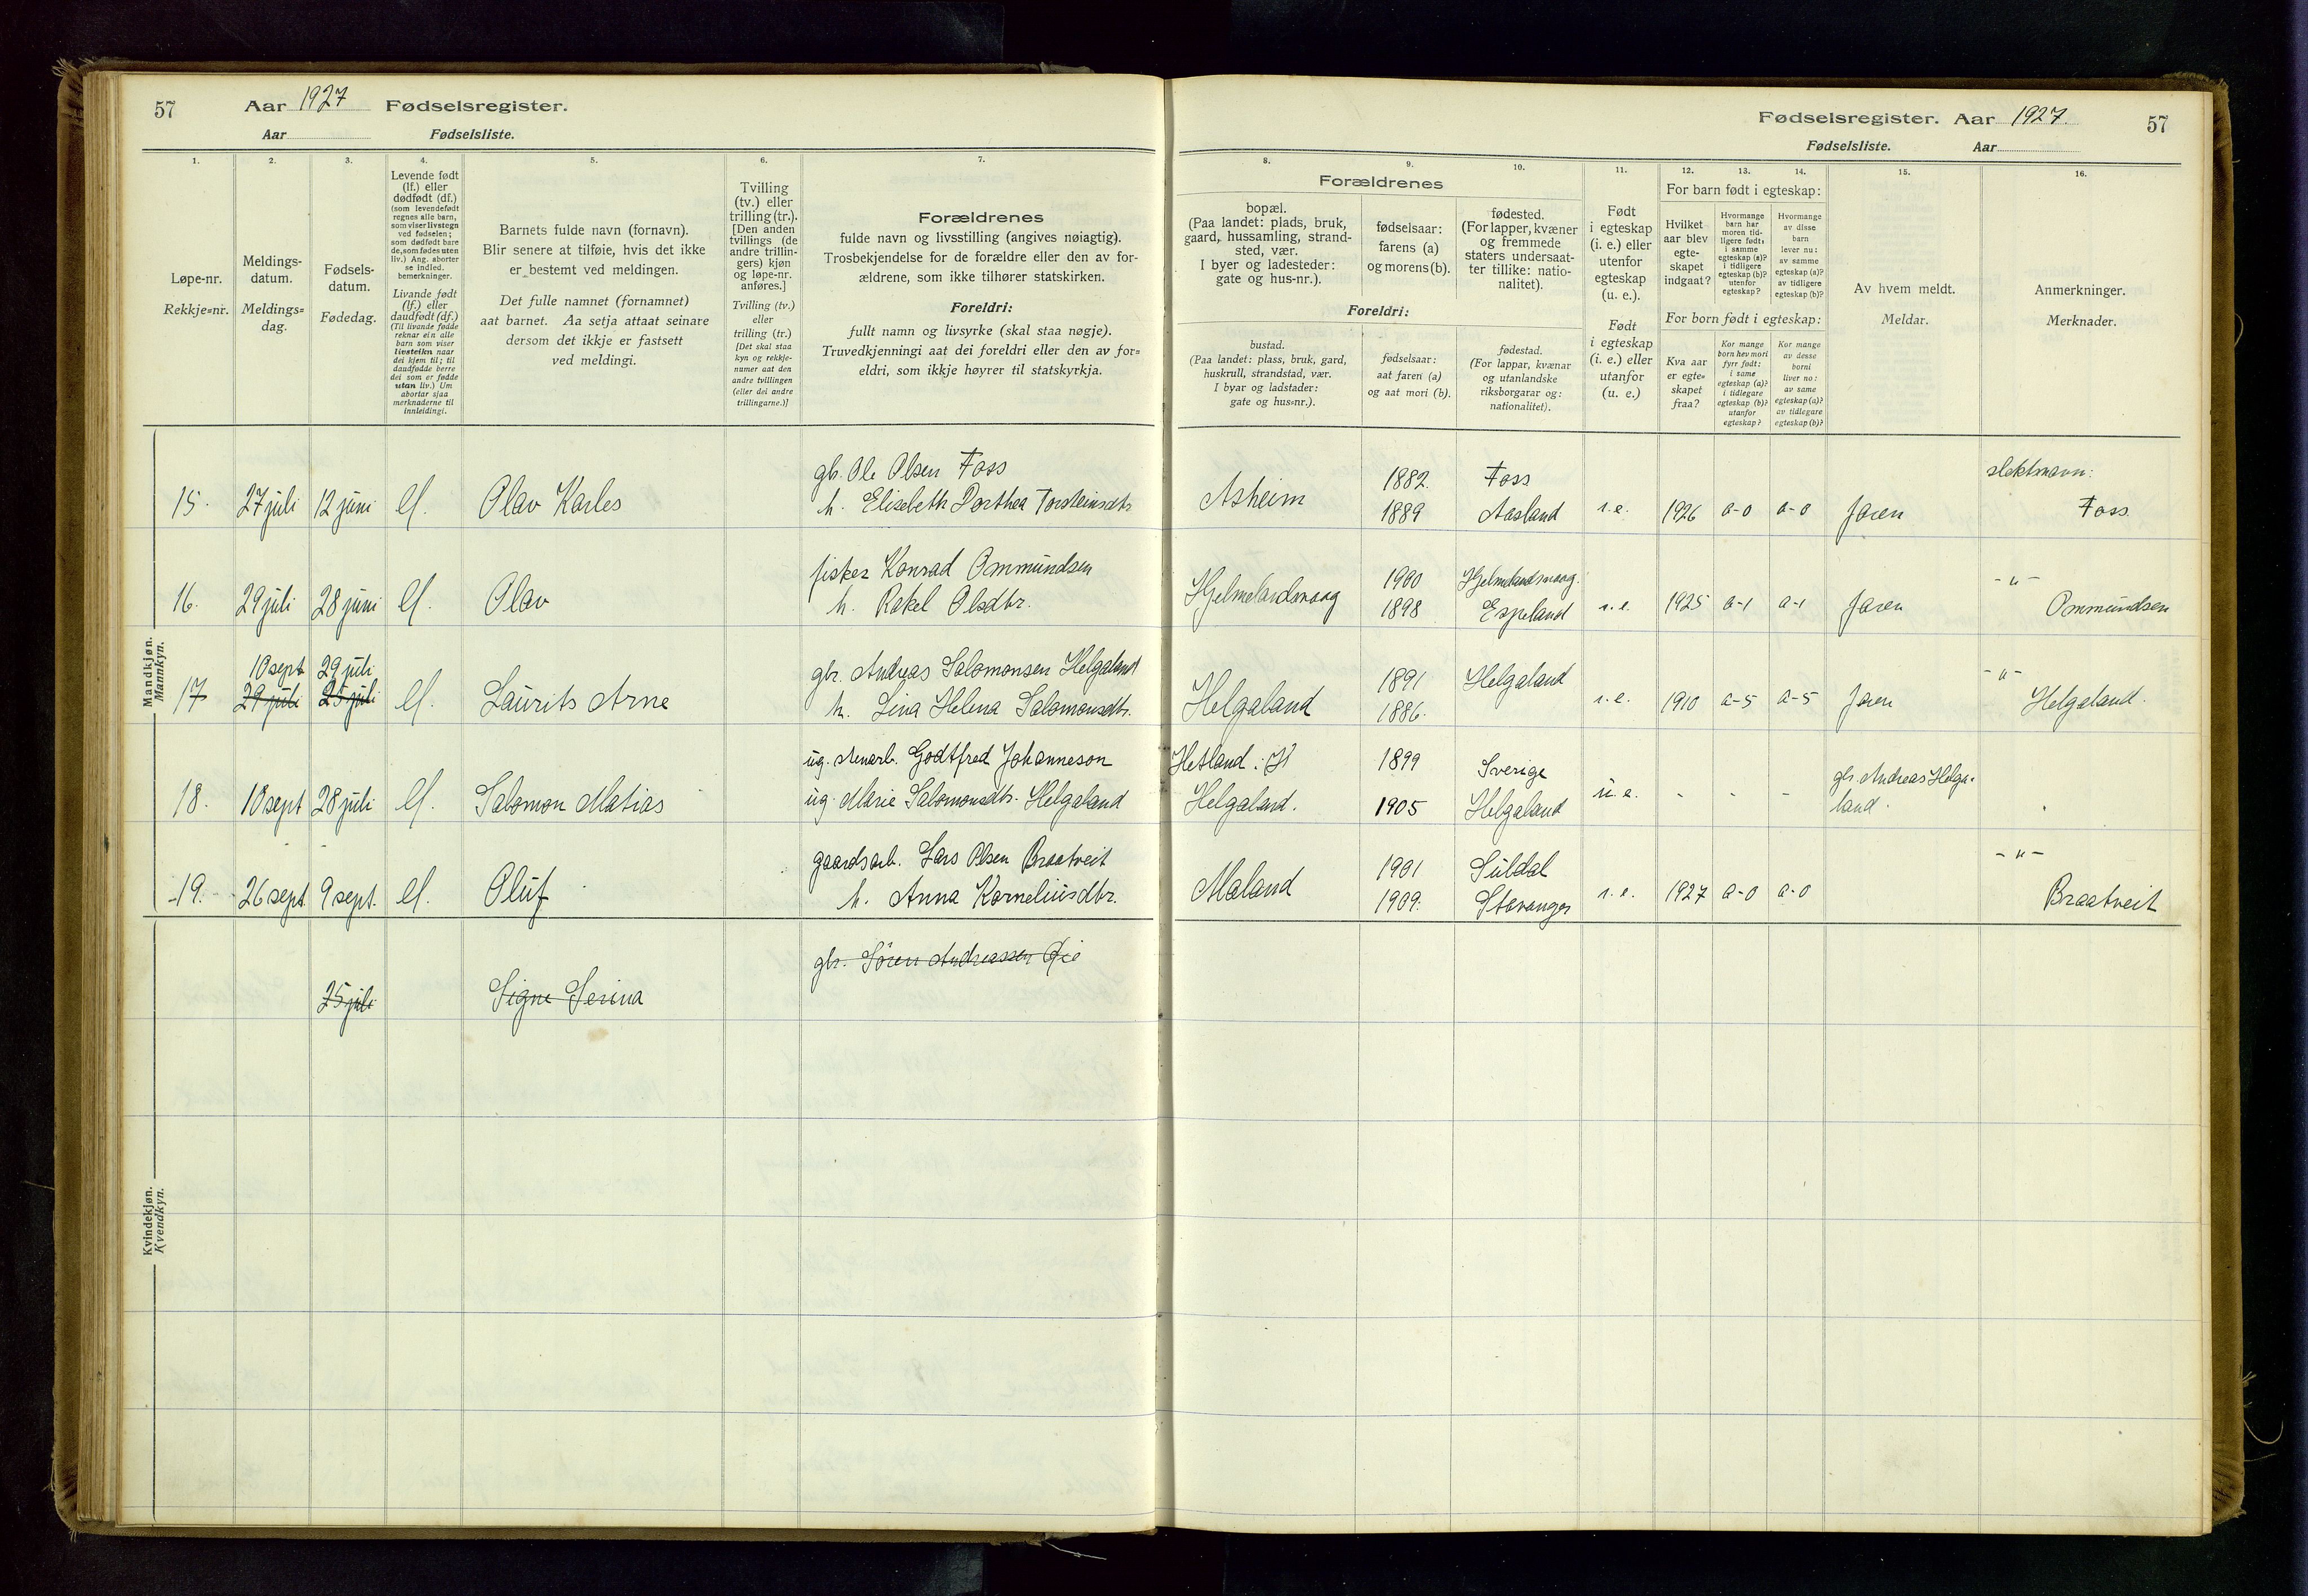 57 Aar 1927 Fødselsregister.
Aar Fødselsliste.
1. 2. 3. 4. 5. 6. 7.
Løpe-nr.
Rekkje=nr.
Meldings-
datum.
Meldings=
dag.
Fødsels-
datum.
Fødedag.
Levende født
(lf.) eller
dødfødt (df.)
(som levendefødt
regnes alle barn,
som viser livstegn
ved fødselen;
som dødfødt bare
de, som fødes uten
liv.) Ang. aborter
se indled.
bemerkninger.
Livande født
(lf.) eller
daudfødt (df.)
(Til livande fødde
reknar ein alle
barn som viser
livsteikn naar
dei kjem til; til
daudfødde berre
dei som er fødde
utan liv.) Um
abortar sjaa
merknaderne til
innleidingi.
Barnets fulde navn (fornavn).
Blir senere at tilføie, hvis det ikke
er bestemt ved meldingen.
Det fulle namnet (fornamnet)
aat barnet. Aa setja attaat seinare
dersom det ikkje er fastsett
ved meldingi.
Tvilling
(tv.) eller
trilling (tr.).
[Den anden
tvillings (de
andre trillin-
gers) kjøn
og løpe-nr.
anføres.]
Tvilling (tv.)
eller
trilling (tr.)
[Det skal staa
kyn og rekkje-
numer aat den
andre tvillingen
(eller dei andre
trillingarne.)]
Forældrenes
fulde navn og livsstilling (angives nøiagtig).
Trosbekjendelse for de forældre eller den av for-
ældrene, som ikke tilhører statskirken.
Foreldri:
fullt namn og livsyrke (skal staa nøgje).
Truvedkjenningi aat dei foreldri eller den av for=
eldri, som ikkje høyrer til statskyrkja.
Mandkjøn.
Mannkyn.
15. 27 juli 12 juni lf. Olav Karles
gbr. Ole Olsen Foss
h. Elisabeth Dorthea Torsteinsdtr
16. 29 juli 28 juni lf. Olav
fisker Konrad Ommundsen
h. Rakel Olsdtr.
10 sept 29 juli
17 29 juli 25 juli lf. Laurits Arne
gbr. Andreas Salomonsen Helgaland
h. Lina Helena Salomonsdtr.
18. 10 sept 28 juli lf. Salomon Matias
ug. Godtfred Johanneson
ug. Marie Salomonsdtr. Helgaland
19. 26 sept. 9 sept. lf. Oluf
gaardsarb. Lars Olsen Braatveit
h. Anna Korneliusdtr.
Kvindekjøn.
Kvendkyn.
gbr. Sören Andreassen Øie
25 juli Signe Serina
Fødselsregister. Aar 1927. 57
Fødselsliste. Aar
8. 9. 10. 11. 12. 13. 14. 15. 16.
Forældrenes
bopæl.
(Paa landet: plads, bruk,
gaard, hussamling, strand-
sted, vær.
I byer og ladesteder:
gate og hus-nr.).
fødselsaar:
farens (a)
og morens (b).
fødested.
(For lapper, kvæner
og fremmede
staters undersaat-
ter tillike: natio-
nalitet).
Foreldri:
bustad.
(Paa landet: plass, bruk, gard,
huskrull, strandstad, vær.
I byar og ladstader:
gate og hus=nr.).
fødselsaar:
aat faren (a)
og aat mori (b).
fødestad.
(For lappar, kvænar
og utanlandske
riksborgarar og:
nationalitet).
Født
i egteskap
(i. e.) eller
utenfor
egteskap
(u. e.).
Født
i egteskap
(i. e.) eller
utanfor
(u. e.)
For barn født i egteskap:
Hvilket
aar blev
egte-
skapet
indgaat?
Hvormange
barn har
moren tid-
ligere født:
i samme
egteskap (a)?
i tidligere
egteskap (b)?
utenfor
egteskap?
Hvormange
av disse
barn
lever nu:
av samme
egteskap (a)?
av tidligere
egteskap (b)?
For born født i egteskap:
Kva aar
er egte=
skapet
fraa?
Kor mange
born hev mori
fyrr født:
i same
egteskap (a)?
i tidlegare
egteskap (b)?
utanfor
egteskap?
Kor mange
av desse
borni
liver no:
av same
egteskap (a)?
av tidlegare
egteskap (b)?
Av hvem meldt.
Meldar.
Anmerkninger.
Merknader.
Asheim 1882. Foss slektsnavn:
1889 Aasland i.e. 1926 a-0 a-0 Faren Foss
Hjelmelandsvaag 1900 Hjelmelandsvaag. -"-
1898 Espeland i.e. 1925 a-1 a-1 Faren Ommundsen
Helgaland 1891 Helgaland -"-
1886. i.e. 1910 a-5 a-5 Faren Helgaland.
Hetland: H 1899 Sverige gbr. Andreas Helga-
Helgaland. 1905 Helgaland u.e. - - - land.
Maland 1901 Suldal -"-
1909. Stavanger i.e. 1927 a-0 a-0 Braatveit